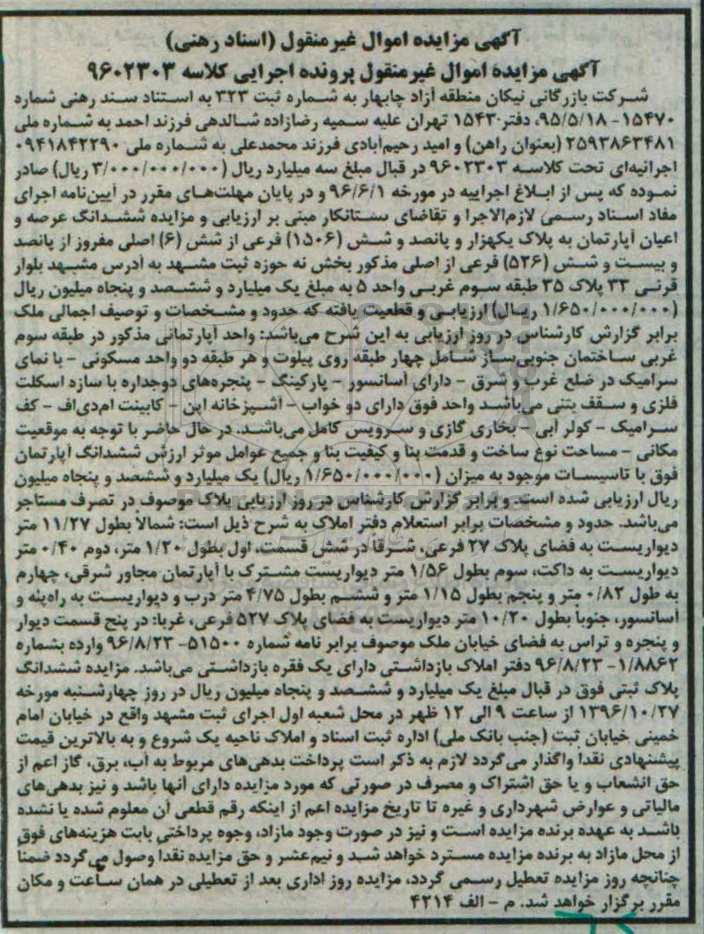 آگهی مزایده اموال غیرمنقول (اسناد رهنی)
آگهی مزایده اموال غیرمنقول پرونده اجرایی کلاسه ۹۶۰۲۳۰۳
شرکت بازرگانی نیکان منطقه آزاد چابهار به شماره ثبت ۳۲۳ به استناد سند رهنی شماره
۱۵۴۷۰-۹۵/۵/۱۸، دفتر ۱۵۴۳ تهران علیه سمیه رضازاده شالدهی فرزند احمد به شماره ملی
۲۵۹۳۸۶۳۴۸۱ (بعنوان راهن) و امید رحیم‌آبادی فرزند محمدعلی به شماره ملی ۰۹۴۱۸۴۲۲۹۰
اجرائیه‌ای تحت کلاسه ۹۶۰۲۳۰۳ در قبال مبلغ سه میلیارد ریال (۳/۰۰۰/۰۰۰/۰۰۰ ریال) صادر
نموده که پس از ابلاغ اجراییه در مورخه ۹۶/۶/۱ و در پایان مهلت‌های مقرر در آیین‌نامه اجرای
مفاد اسناد رسمی لازم‌الاجرا و تقاضای بستانکار مبنی بر ارزیابی و مزایده ششدانگ عرصه و
اعیان آپارتمان به پلاک یکهزار و پانصد و شش (۱۵۰۶) فرعی از شش (۶) اصلی مفروز از پانصد
و بیست و شش (۵۲۶) فرعی از اصلی مذکور بخش نه حوزه ثبت مشهد به آدرس مشهد بلوار
قرنی ۳۳ پلاک ۳۵ طبقه سوم غربی واحد ۵ به مبلغ یک میلیارد و ششصد و پنجاه میلیون ریال
(۱/۶۵۰/۰۰۰/۰۰۰ ریال) ارزیابی و قطعیت یافته که حدود و مشخصات و توصیف اجمالی ملک
برابر گزارش کارشناس در روز ارزیابی به این شرح می‌باشد: واحد آپارتمانی مذکور در طبقه سوم
غربی ساختمان جنوبی‌ساز شامل چهار طبقه روی پیلوت و هر طبقه دو واحد مسکونی - با نمای
سرامیک در ضلع غرب و شرق - دارای آسانسور - پارکینگ - پنجره‌های دوجداره با سازه اسکلت
فلزی و سقف بتنی می‌باشد واحد فوق دارای دو خواب - آشپزخانه اپن - کابینت ام‌دی‌اف - کف
سرامیک - کولر آبی - بخاری گازی و سرویس کامل می‌باشد. در حال حاضر با توجه به موقعیت
مکانی - مساحت نوع ساخت و قدمت بنا و کیفیت بنا و جمیع عوامل موثر ارزش ششدانگ آپارتمان
فوق با تاسیسات موجود به میزان (۱/۶۵۰/۰۰۰/۰۰۰ ریال) یک میلیارد و ششصد و پنجاه میلیون
ریال ارزیابی شده است. و برابر گزارش کارشناس در روز ارزیابی پلاک موصوف در تصرف مستاجر
می‌باشد. حدود و مشخصات برابر استعلام دفتر املاک به شرح ذیل است: شمالاً بطول ۱۱/۲۷ متر
دیواریست به فضای پلاک ۲۷ فرعی، شرقا در شش قسمت، اول بطول ۱/۲۰ متر، دوم ۰/۴۰ متر
دیواریست به داکت، سوم بطول ۱/۵۶ متر دیواریست مشترک با آپارتمان مجاور شرقی، چهارم
به طول ۰/۸۲ متر و پنجم بطول ۱/۱۵ متر و ششم بطول ۴/۷۵ متر درب و دیواریست به راه‌پله و
آسانسور، جنوباً بطول ۱۰/۲۰ متر دیواریست به فضای پلاک ۵۲۷ فرعی، غربا: در پنج قسمت دیوار
و پنجره و تراس به فضای خیابان ملک موصوف برابر نامه شماره ۵۱۵۰۰-۹۶/۸/۲۳ وارده بشماره
۱/۸۸۶۲-۹۶/۸/۲۳ دفتر املاک بازداشتی دارای یک فقره بازداشتی می‌باشد. مزایده ششدانگ
پلاک ثبتی فوق در قبال مبلغ یک میلیارد و ششصد و پنجاه میلیون ریال در روز چهارشنبه مورخه
۱۳۹۶/۱۰/۲۷ از ساعت ۹ الی ۱۲ ظهر در محل شعبه اول اجرای ثبت مشهد واقع در خیابان امام
خمینی خیابان ثبت (جنب بانک ملی) اداره ثبت اسناد و املاک ناحیه یک شروع و به بالاترین قیمت
پیشنهادی نقدا واگذار می‌گردد لازم به ذکر است پرداخت بدهی‌های مربوط به آب، برق، گاز اعم از
حق انشعاب و یا حق اشتراک و مصرف در صورتی که مورد مزایده دارای آنها باشد و نیز بدهی‌های
مالیاتی و عوارض شهرداری و غیره تا تاریخ مزایده اعم از اینکه رقم قطعی آن معلوم شده یا نشده
باشد به عهده برنده مزایده است و نیز در صورت وجود مازاد، وجوه پرداختی بابت هزینه‌های فوق
از محل مازاد به برنده مزایده مسترد خواهد شد و نیم‌عشر و حق مزایده نقدا وصول می‌گردد ضمناً
چنانچه روز مزایده تعطیل رسمی گردد، مزایده روز اداری بعد از تعطیلی در همان ساعت و مکان
مقرر برگزار خواهد شد. م - الف ۴۲۱۴